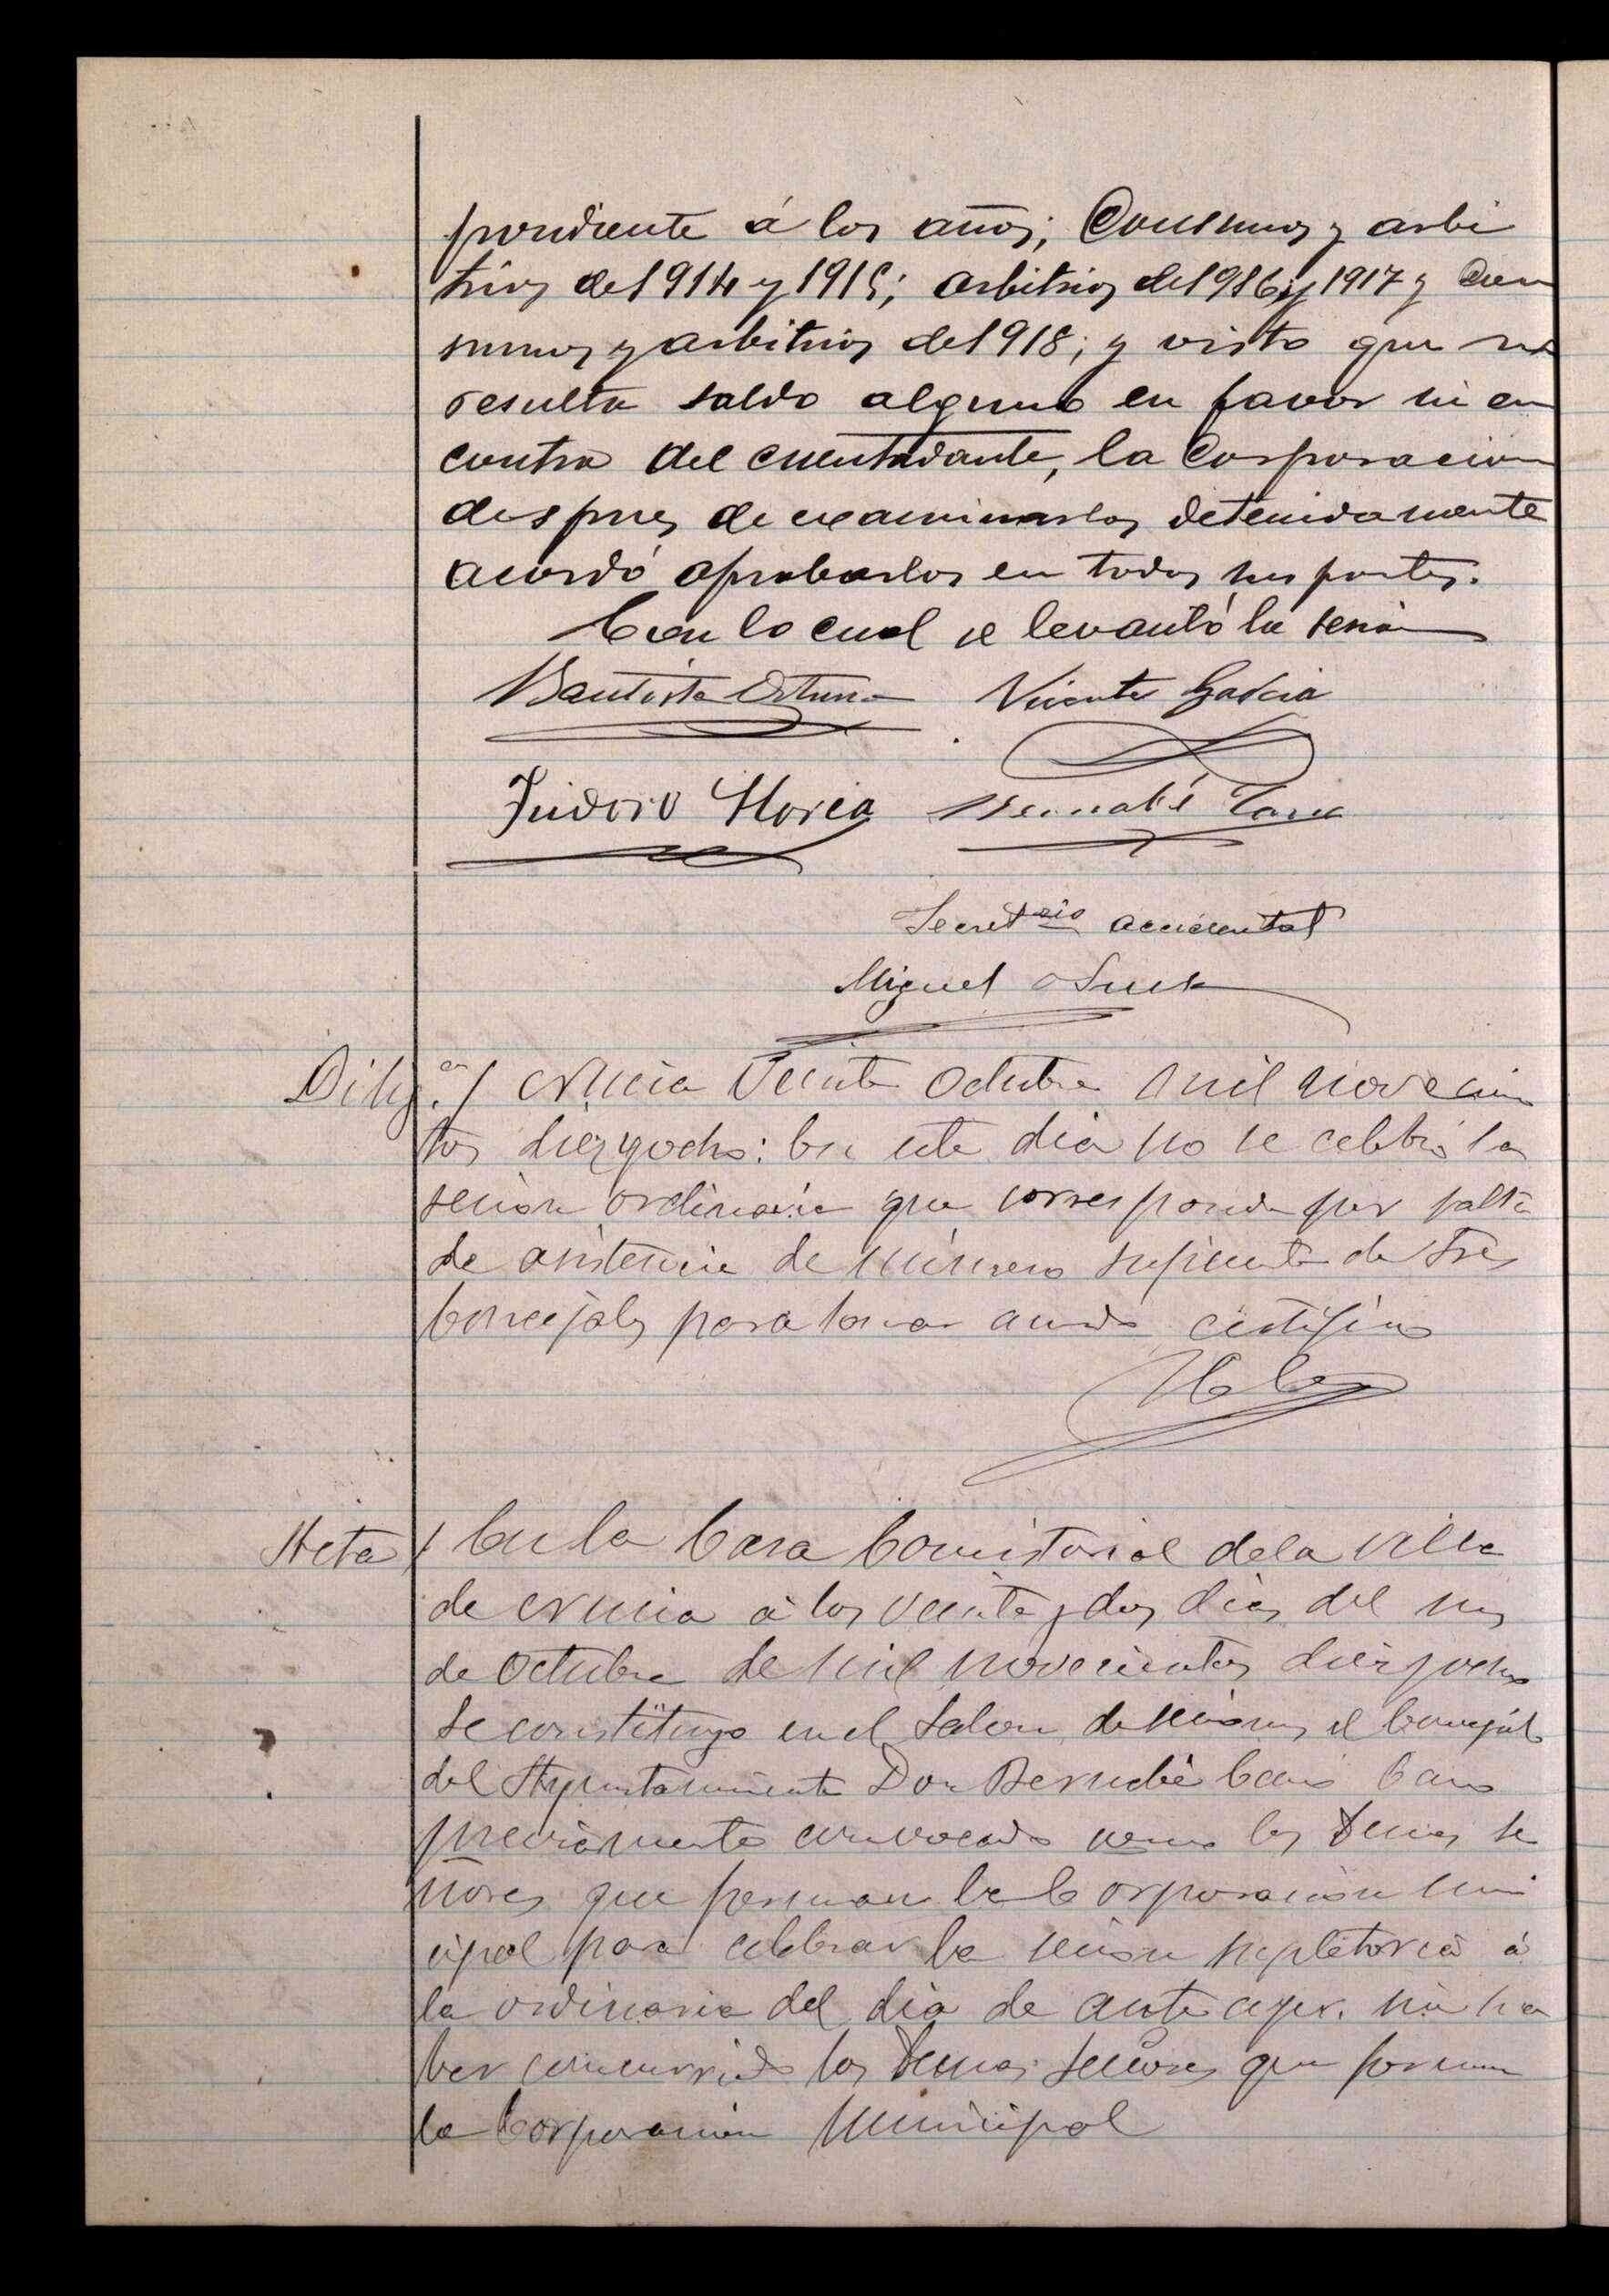 pondiente á los años; Consumos y arbi
trios de 1914 y 1915; arbitrios de 1916 y 1917 y Con
sumos y arbitrios de 1918; y visto que no
resulta saldo alguno en favor ni en
contra del cuentadante, la Corporacion
despues de examinarlos detenidamente
acordó aprobarlos en todas sus partes.
Con lo cual se levantó la sesion
Bautista Ortuno Vicente Garcia
Isidoro Llorca Bernabé
Secretario accidental
Miguel
Dilig.cia / Nucia Veinte Octubre mil novecien
tos diez y ocho: En este dia no se celebró la
sesion ordinaria que corresponde por falta
de asistencia de número suficiente de Sres
Concejales para tomar acuerdo certifico
Acta / En la Casa Consistorial de la villa
de Nucia á los veinte y dos dias del mes
de Octubre de mil novecientos diez y ocho
se constituyo en el Salon de sesiones el Concejal
del Ayuntamiento Don Bernabé Cano Cano
previamente convocado como los demas se
ñores que forman la Corporación muni
cipal para celebrar la sesion supletoria á
la ordinaria del dia de ante ayer. sin ha
ber concurrido los demas señores que forman
la Corporacion Municipal